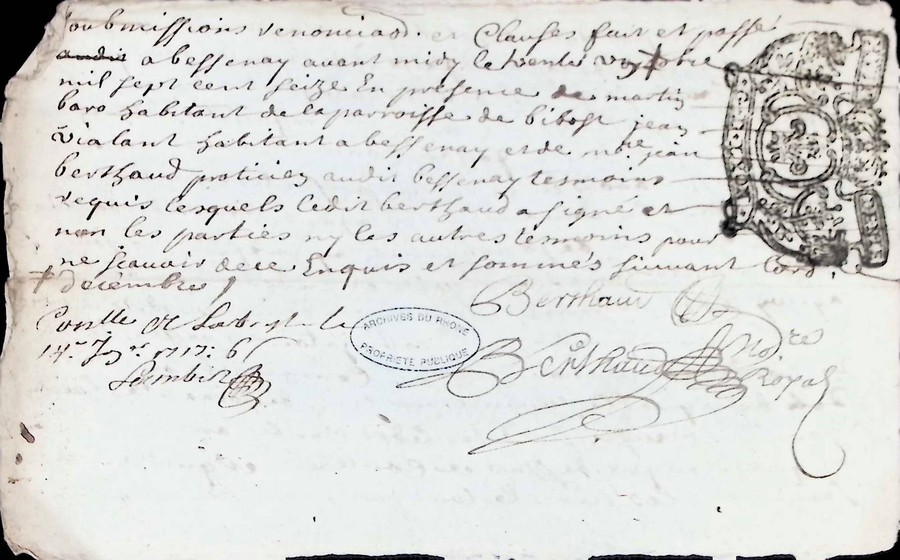 soubmissions renonciaõ. et Clauses fait et passé
audit a bessenay avant midy le trente
mil sept cent seize En presence de martin
baro habitant de la parroisse de bibost jean
vialant habitant a bessenay et de me jean
berthaud praticien audit bessenay tesmoins
requis lesquels ledit berthaud a signé et
non les parties ny les autres temoins pour
ne scavoir de ce Enquis et sommés suivant lord.ce
+ decembre
Berthaud
Conlle et
14e 1717:
ARCHIVES DU RHONE
PROPRIÉTÉ PUBLIQUE
Berthaud Nore
Royal